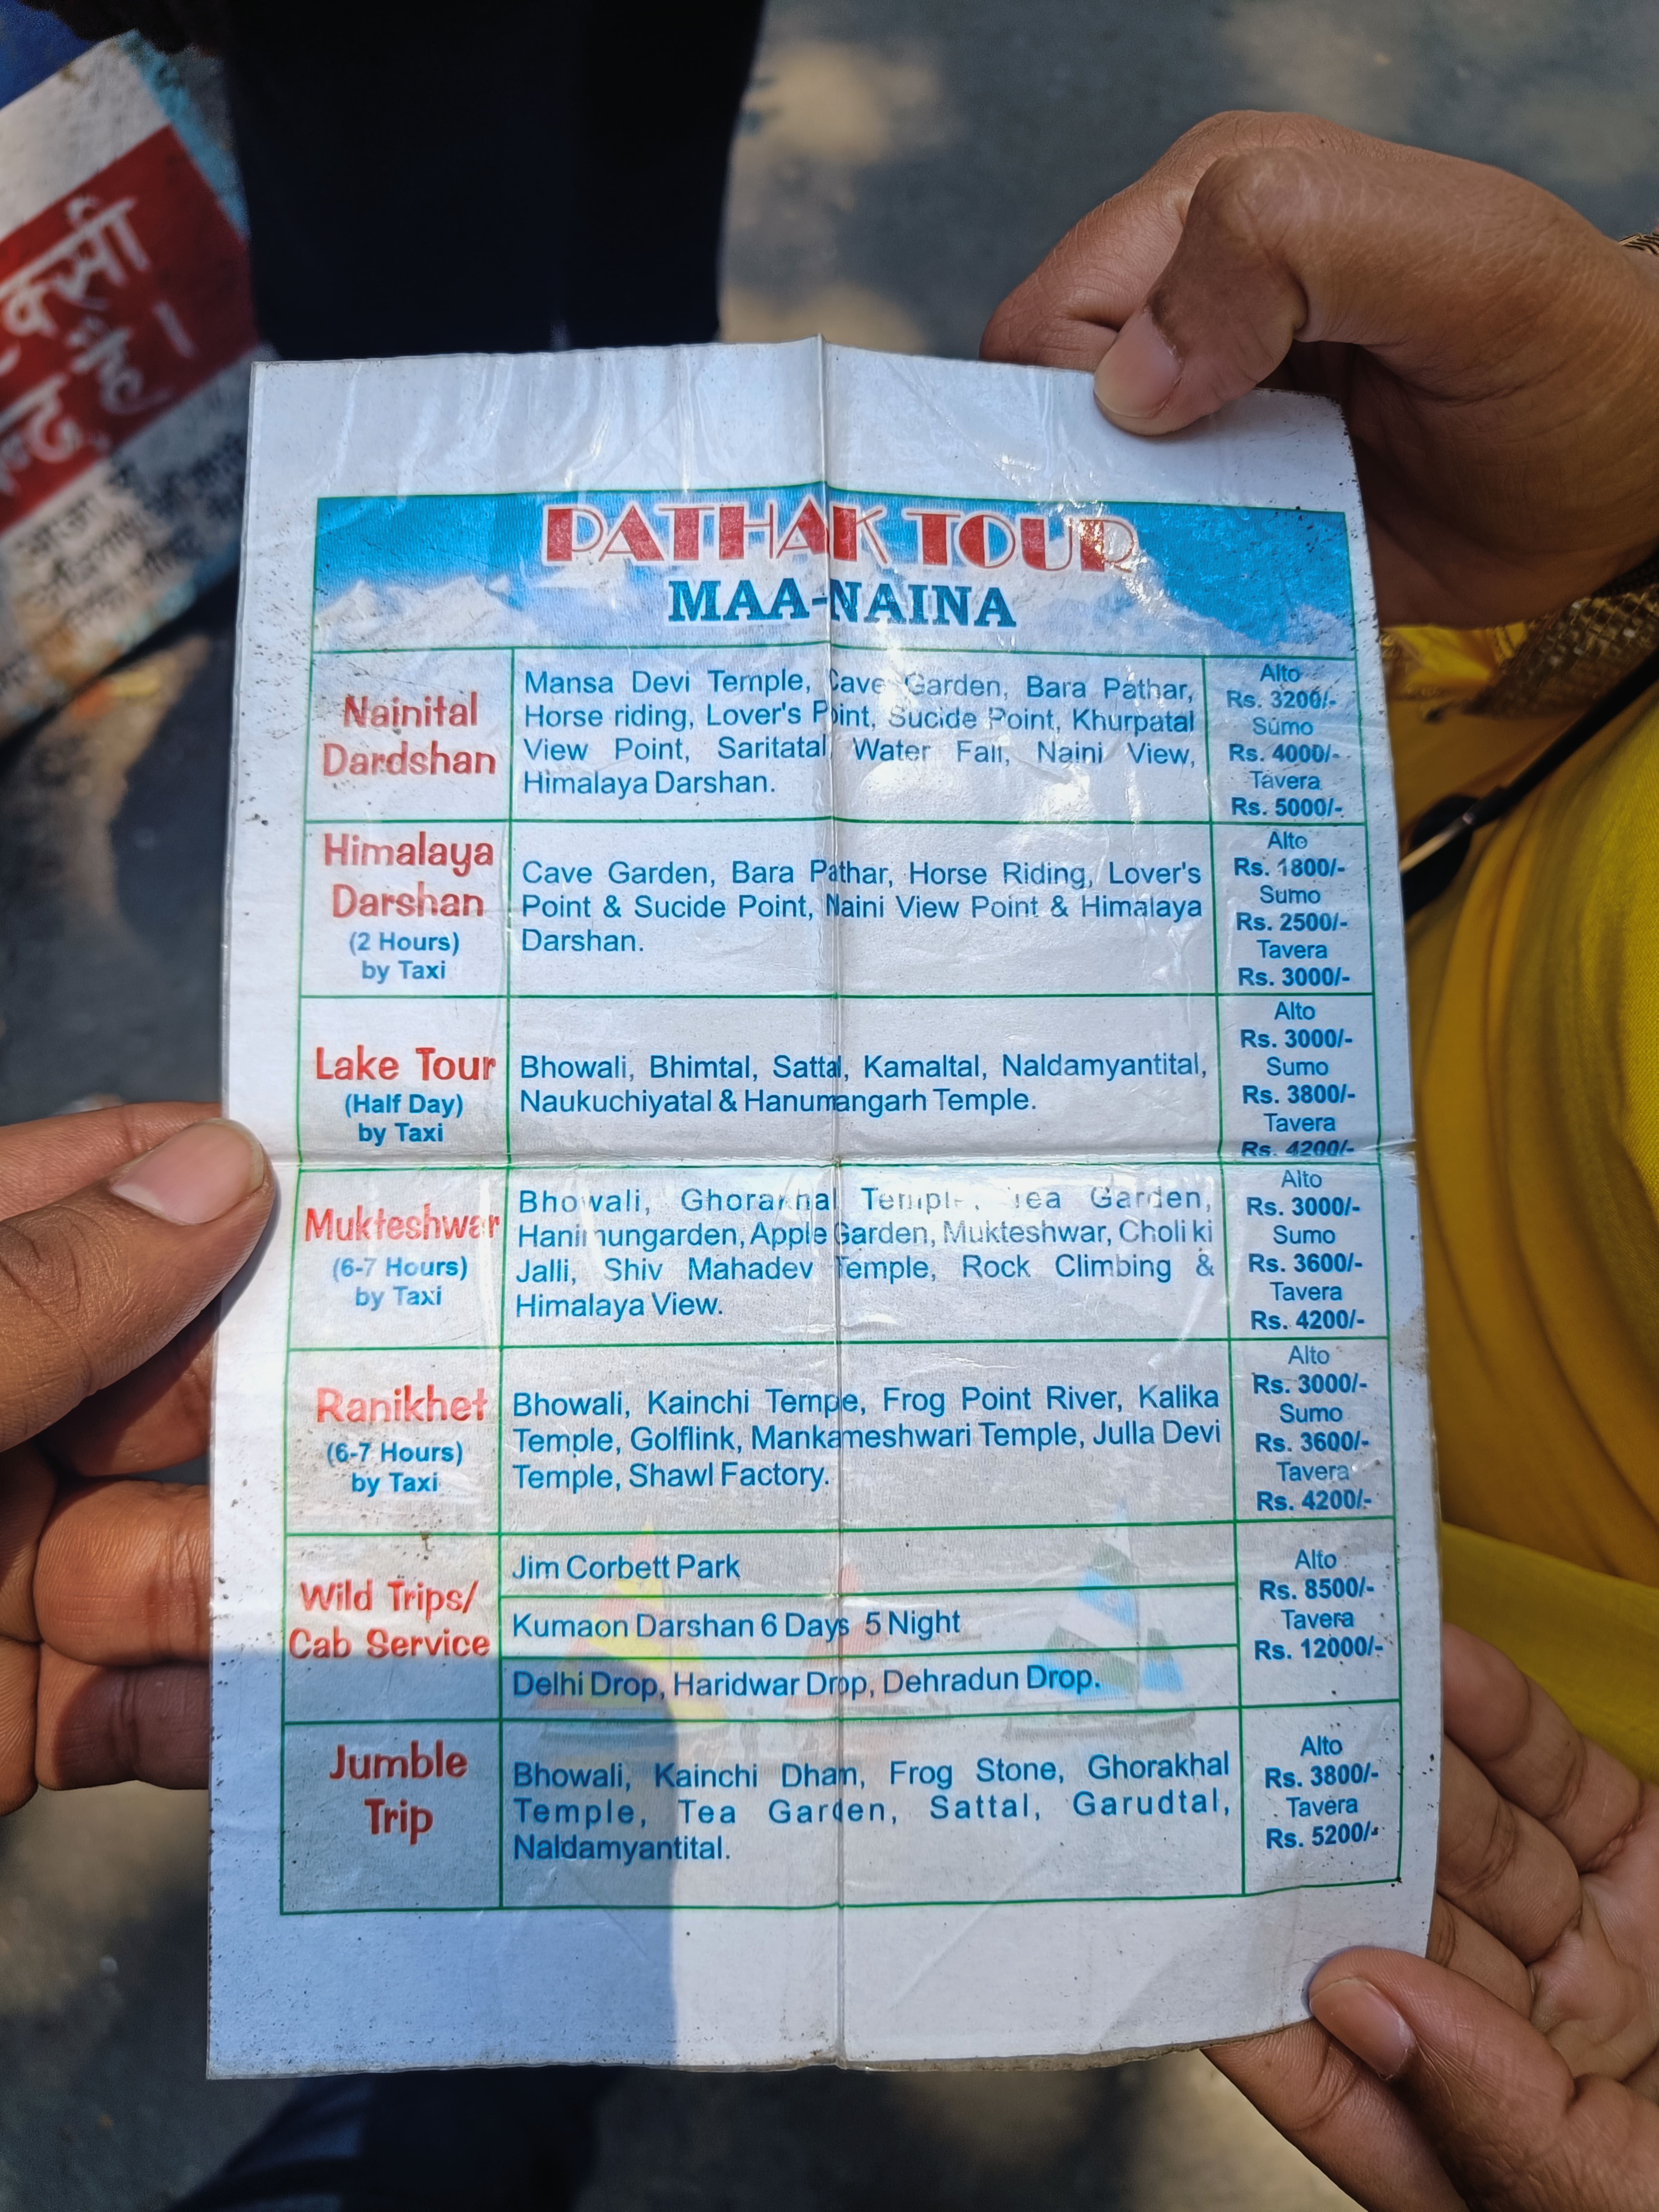 क्सी
है।
PATHAK TOUR
MAA-NAINA
Nainital
Dardshan
Mansa Devi Temple, Cave Garden, Bara Pathar,
Horse riding, Lover's Point, Sucide Point, Khurpatal
View Point, Saritatal Water Fall, Naini View,
Himalaya Darshan.
Alto
Rs. 3200/-
Sumo
Rs. 4000/-
Tavera
Rs. 5000/-
Himalaya
Darshan
(2 Hours)
by Taxi
Cave Garden, Bara Pathar, Horse Riding, Lover's
Point & Sucide Point, Naini View Point & Himalaya
Darshan.
Alto
Rs. 1800/-
Sumo
Rs. 2500/-
Tavera
Rs. 3000/-
Lake Tour
(Half Day)
by Taxi
Bhowali, Bhimtal, Sattal, Kamaltal, Naldamyantital,
Naukuchiyatal & Hanumangarh Temple.
Alto
Rs. 3000/-
Sumo
Rs. 3800/-
Tavera
Rs. 4200/-
Mukteshwar
(6-7 Hours)
by Taxi
Bhowali, Ghorakhal Temple, Tea Garden,
Apple Garden, Mukteshwar, Choli ki
Jalli, Shiv Mahadev Temple, Rock Climbing &
Himalaya View.
Alto
Rs. 3000/-
Sumo
Rs. 3600/-
Tavera
Rs. 4200/-
Ranikhet
(6-7 Hours)
by Taxi
Bhowali, Kainchi Tempe, Frog Point River, Kalika
Temple, Golflink, Mankameshwari Temple, Julla Devi
Temple, Shawl Factory.
Alto
Rs. 3000/-
Sumo
Rs. 3600/-
Tavera
Rs. 4200/-
Wild Trips/
Cab Service
Jim Corbett Park
Kumaon Darshan 6 Days 5 Night
Delhi Drop, Haridwar Drop, Dehradun Drop.
Alto
Rs. 8500/-
Tavera
Rs. 12000/-
Jumble
Trip
Bhowali, Kainchi Dham, Frog Stone, Ghorakhal
Temple, Tea Garden, Sattal, Garudtal,
Naldamyantital.
Alto
Rs. 3800/-
Tavera
Rs. 5200/-